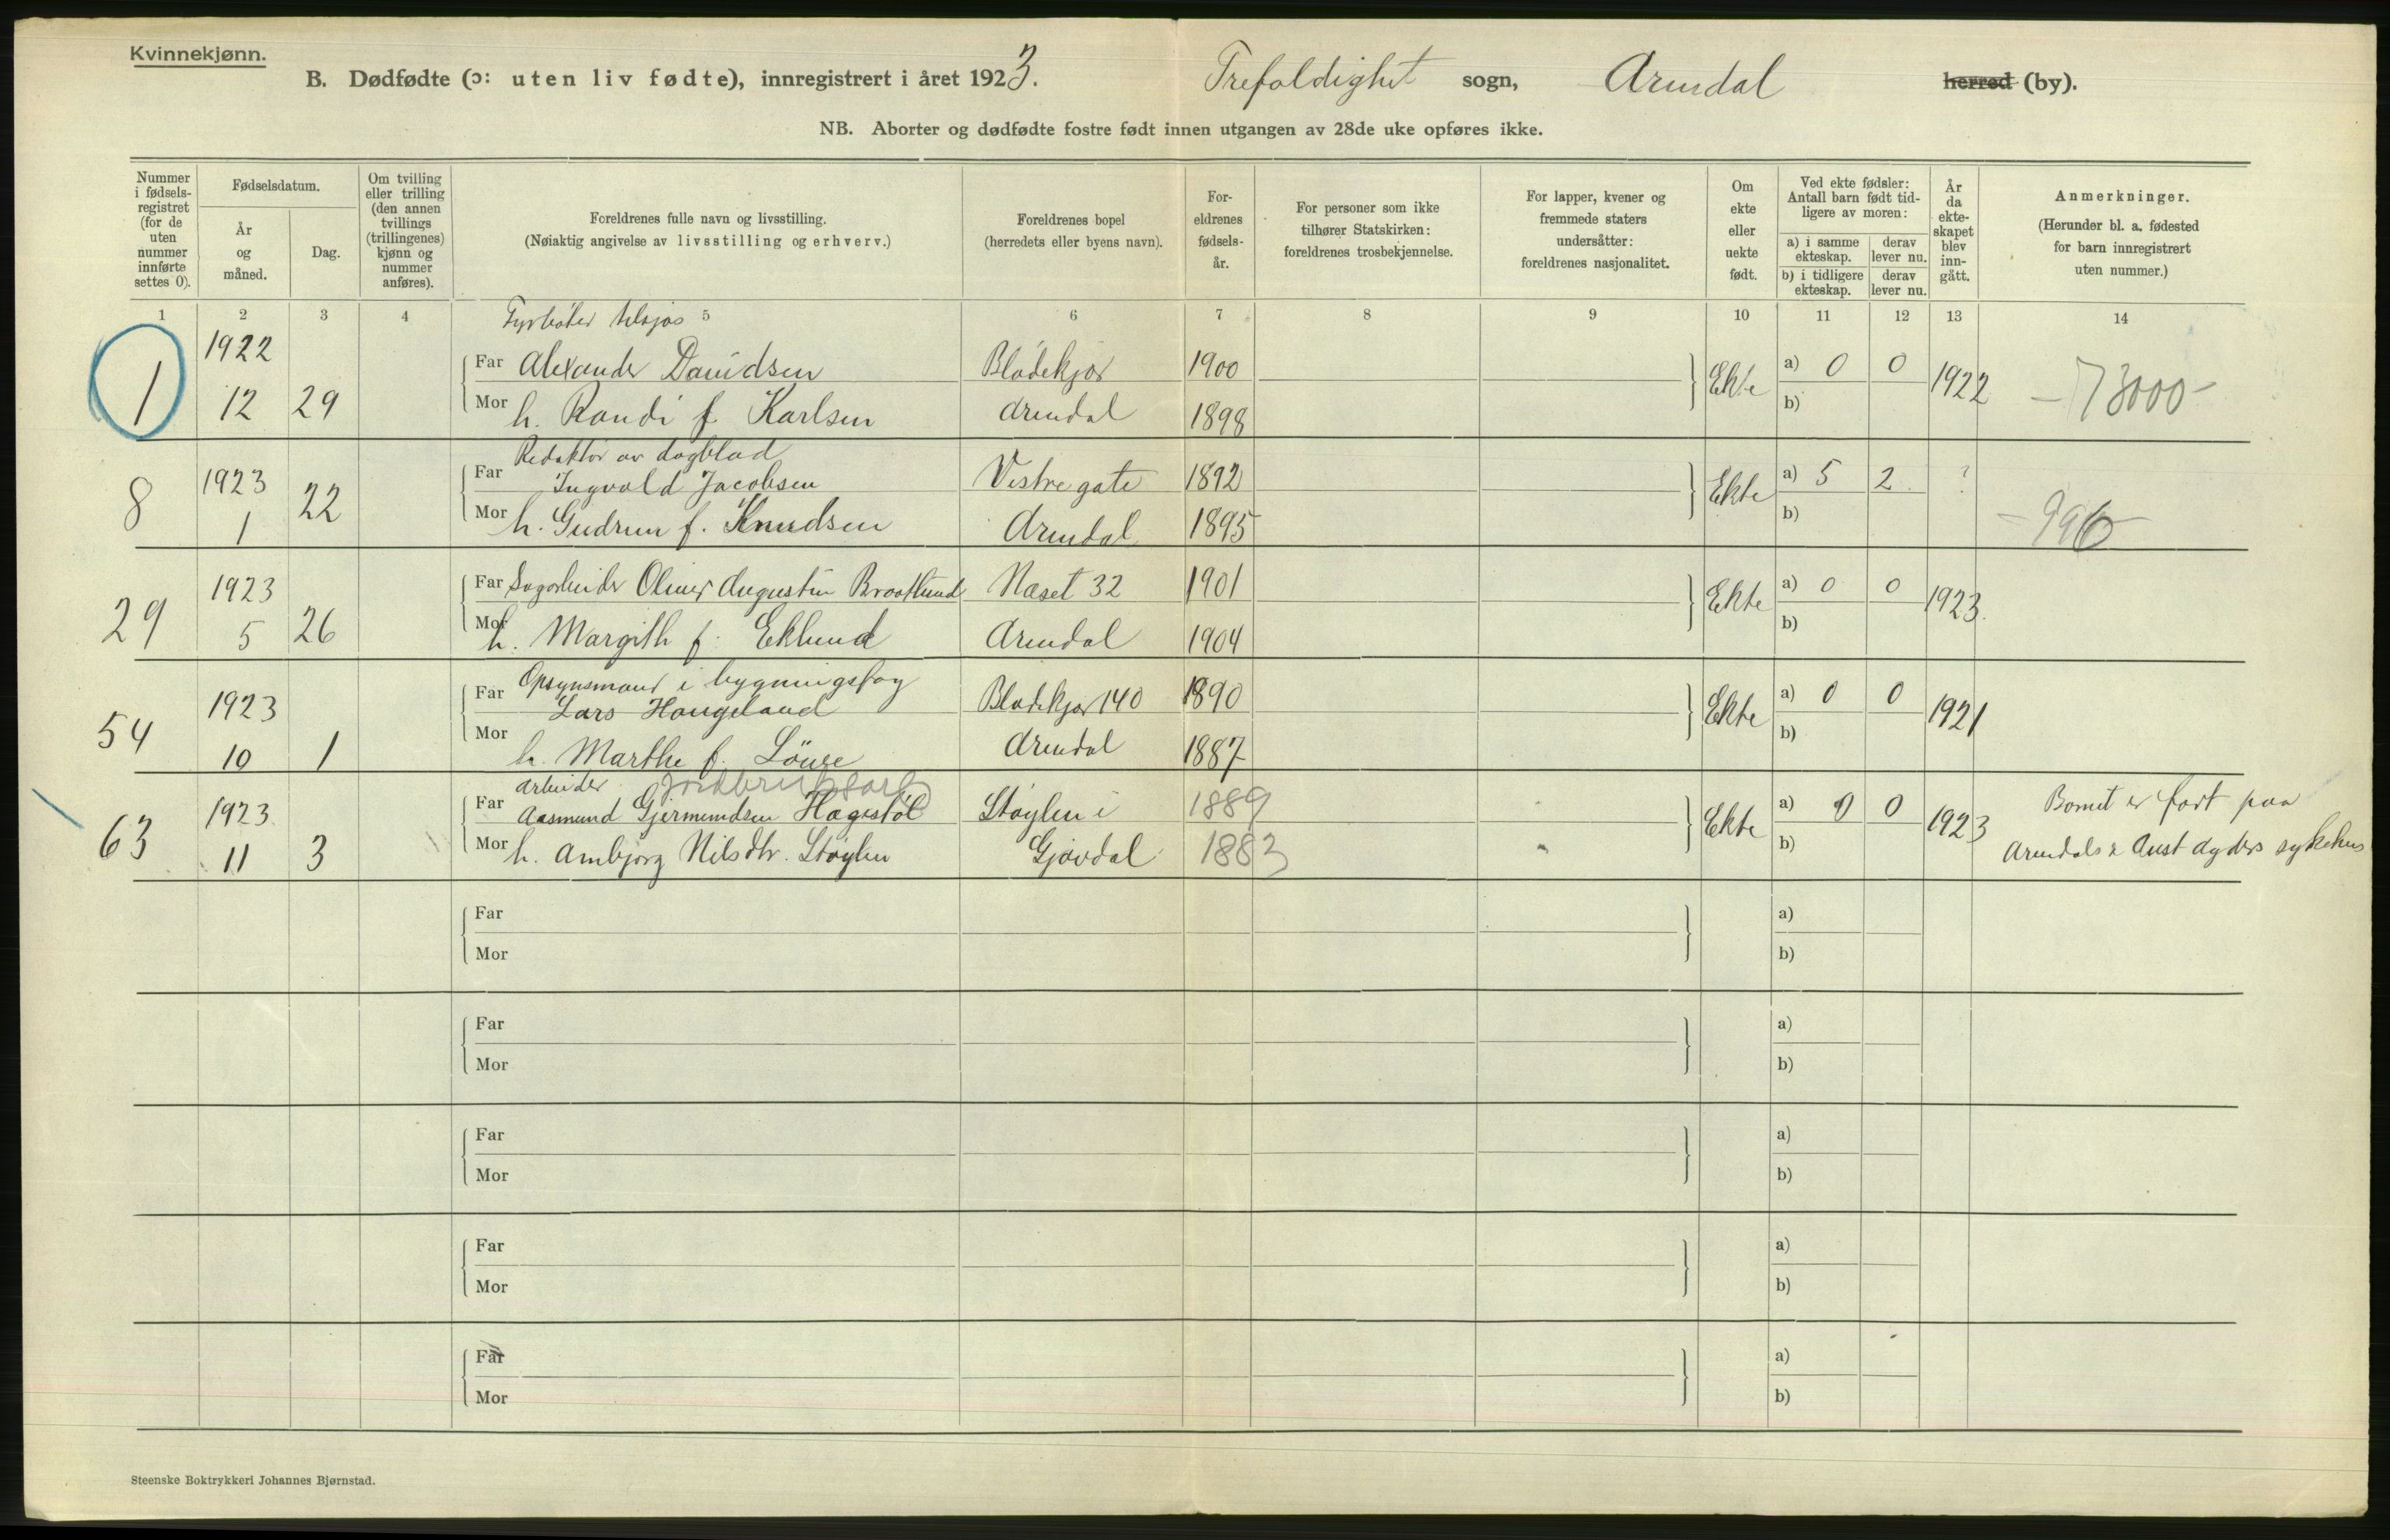 Kvinnekjønn.
B. Dødfødte (ɔ: uten liv fødte), innregistrert i året 1923. Trefoldighet sogn, Arendal herred (by).
NB. Aborter og dødfødte fostre født innen utgangen av 28de uke opføres ikke.
Nummer i fødsels-registret (for de uten nummer innførte settes 0).
Fødselsdatum.
År og måned.
Dag.
Om tvilling eller trilling (den annen tvillings (trillingenes) kjønn og nummer anføres).
Foreldrenes fulle navn og livsstilling.
(Nøiaktig angivelse av livsstilling og erhverv.)
Foreldrenes bopel
(herredets eller byens navn).
For-eldrenes fødsels-år.
For personer som ikke tilhører Statskirken: foreldrenes trosbekjennelse.
For lapper, kvener og fremmede staters undersåtter: foreldrenes nasjonalitet.
Om ekte eller uekte født.
Ved ekte fødsler: Antall barn født tid-ligere av moren:
a) i samme ekteskap.
derav lever nu.
b) i tidligere ekteskap.
derav lever nu.
År da ekte-skapet blev inn-gått.
Anmerkninger.
(Herunder bl. a. fødested for barn innregistrert uten nummer.)
1 2 3 4 5 6 7 8 9 10 11 12 13 14
Fyrbøter tilsjøs
1922 Far Alexander Davidsen Blødekjær 1900 a) 0 0
1 12 29 Mor h. Randi f. Karlsen Arendal 1898 Ekte b) 1922 -73000-
Redaktør av dagblad
1923 Far Ingvald Jacobsen Vestregate 1892 a) 5 2 ?
8 1 22 Mor h. Gudrun f. Knudsen Arendal 1895 Ekte b) -996-
1923 Far Oliver Augustin Næset 32 1901 a) 0 0
29 5 26 Mor h. Margith f. Eklund Arendal 1904 Ekte b) 1923.
Opsynsmand i bygningsfag
1923 Far Lars Haugeland Blødekjær 140 1890 a) 0 0
54 10 1 Mor h. Marthe f. Arendal 1887 Ekte b) 1921
Arbeider
1923 Far Aasmund Gjermundsen Hagestøl Støylen i 1889 a) 0 0 Barnet er født paa
63 11 3 Mor h. Ambjørg Nilsdtr. Støylen Gjøvdal 1883 Ekte b) 1923 Arendals & Aust Agders sykehus
Far a)
Mor b)
Far a)
Mor b)
Far a)
Mor b)
Far a)
Mor b)
Far a)
Mor b)
Steenske Boktrykkeri Johannes Bjørnstad.